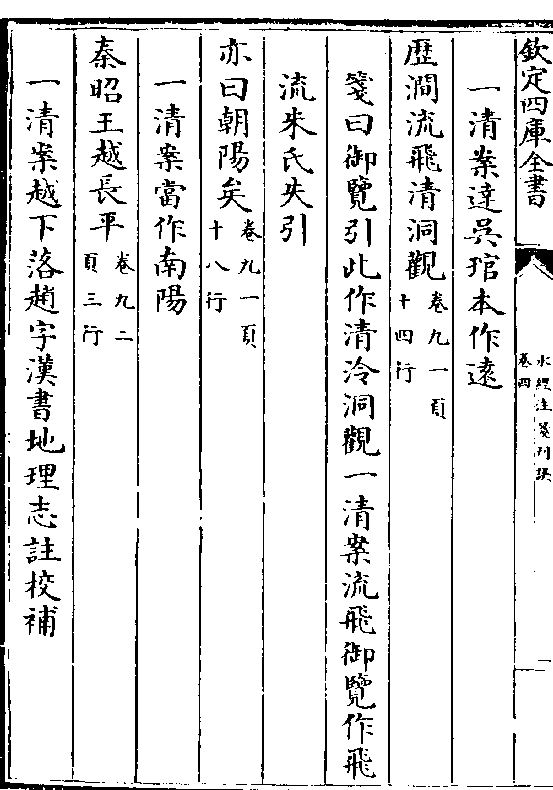 欽定四庫全書
水經注箋刊誤
卷四
一
一清案達吳琯本作遠
歷澗流飛清洞觀卷九一頁十四行
箋曰御覽引此作清泠洞觀一清案流飛御覽作飛
流朱氏失引
亦曰朝陽矣卷九一頁十八行
一清案當作南陽
秦昭王越長平卷九二頁三行
一清案越下落趙字漢書地理志註校補